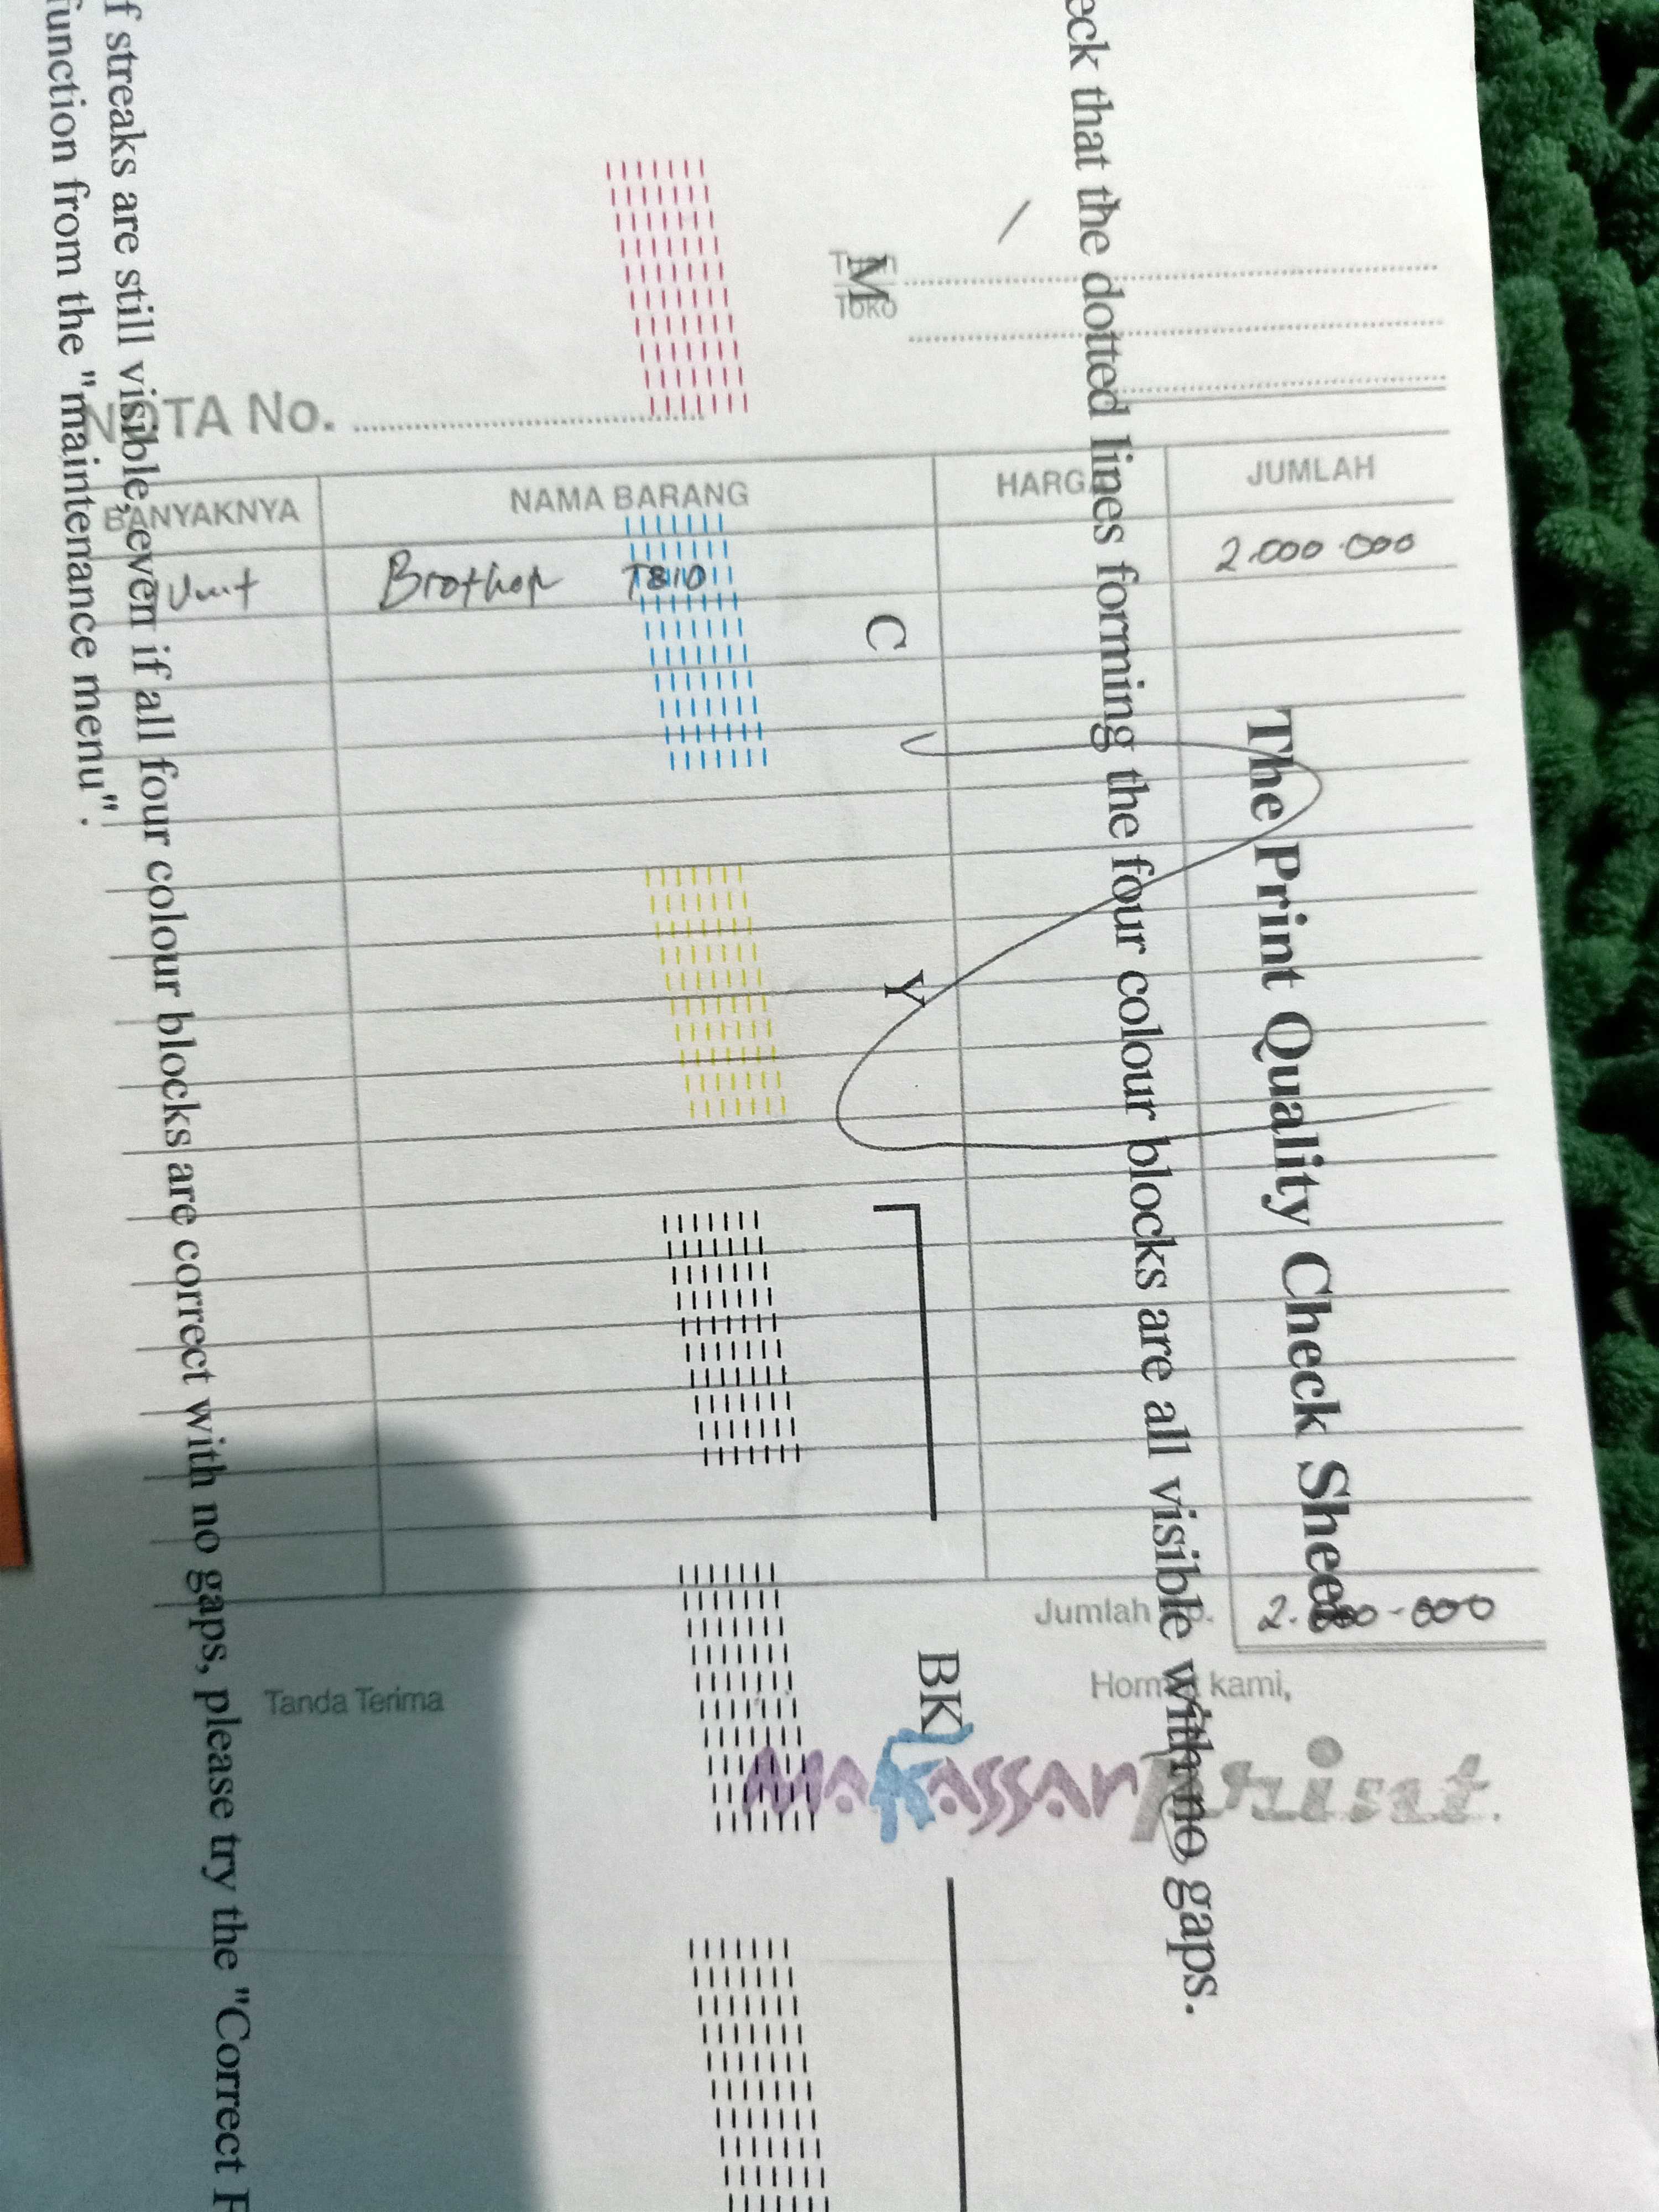 Tuan
Toko
NOTA No.
BANYAKNYA NAMA BARANG HARGA JUMLAH
Unit Brother T810 2.000.000
Jumlah Rp. 2.000.000
Tanda Terima Hormat kami,
Makassar Print.
The Print Quality Check Sheet
eck that the dotted lines forming the four colour blocks are all visible with no gaps.
M C Y BK
f streaks are still visible, even if all four colour blocks are correct with no gaps, please try the "Correct F
function from the "maintenance menu".